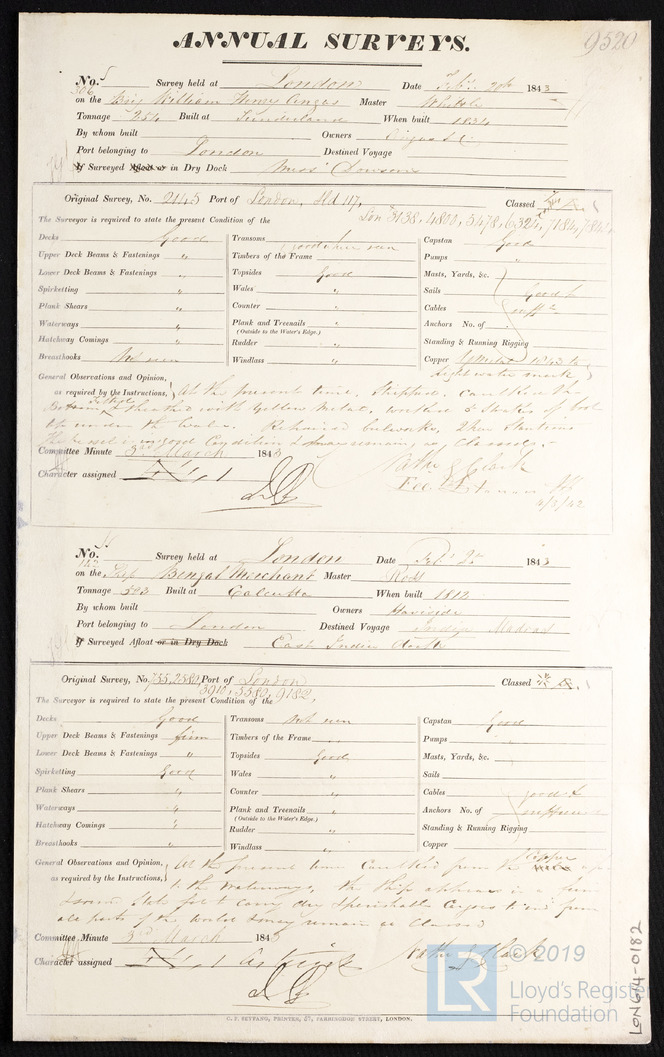 ANNUAL SURVEYS.
9520
No. 5 Survey held at London Date Feb. 1843
306
on the Brig William Henry Angas Master
Tonnage 254 Built at Sunderland When built 1834
By whom built Owners Angas & Co
Port belonging to London Destined Voyage
If Surveyed Afloat or in Dry Dock Miss Dowson
Original Survey, No. 2145 Port of London, Hd 117, Classed
The Surveyor is required to state the present Condition of the Lon 3138, 4800, 5478, 6324, 7184,
Decks Good Transoms good where seen Capstan Good
Upper Deck Beams & Fastenings " Timbers of the Frame Pumps "
Lower Deck Beams & Fastenings " Topsides Good Masts, Yards, &c.
Spirketting " Wales " Sails Good &
Plank Shears " Counter " Cables sufft
Waterways " Plank and Treenails " Anchors No. of
(Outside to the Water's Edge.)
Hatchway Comings " Rudder " Standing & Running Rigging
Breasthooks Not seen Windlass " Copper Y Metal 1843 to
light water mark
General Observations and Opinion,
as required by the Instructions, At the present time, Stripped, caulked the
Bottom, felted & sheathed with Yellow Metal,
up under the Wales. Repaired bulwarks, & new Stantions
The Vessel is in good Condition & may remain as Classed.
Committee Minute 3rd March 1843
Character assigned
Nathl J Clark
Fee
4/3/42
No. 4 Survey held at London Date Feb. 1843
on the Ship Bengal Merchant Master Ross
Tonnage 503 Built at Calcutta When built 1812
By whom built Owners Haviside
Port belonging to London Destined Voyage India Madras
If Surveyed Afloat or in Dry Dock East India Docks
Original Survey, No. 755, 2580, Port of London Classed
3910, 5580, 9182,
The Surveyor is required to state the present Condition of the
Decks Good Transoms Not seen Capstan Good
Upper Deck Beams & Fastenings firm Timbers of the Frame Pumps
Lower Deck Beams & Fastenings " Topsides Good Masts, Yards, &c.
Spirketting Good Wales " Sails
Plank Shears " Counter " Cables good &
Waterways " Plank and Treenails " Anchors No. of sufficient
(Outside to the Water's Edge.)
Hatchway Comings " Rudder " Standing & Running Rigging
Breasthooks " Windlass " Copper
General Observations and Opinion,
as required by the Instructions, At the present time Caulked from the Copper
to the Waterways, the Ship appears in a firm
& sound State fit to carry dry & perishable Cargoes to and from
all parts of the World & may remain as Classed
Committee Minute 3rd March 1843
Character assigned
Nathl J Clark
C. F. SEYFANG, PRINTER, 57, FARRINGDON STREET, LONDON.
LR © 2019
Lloyd's Register
Foundation
LON614-0182